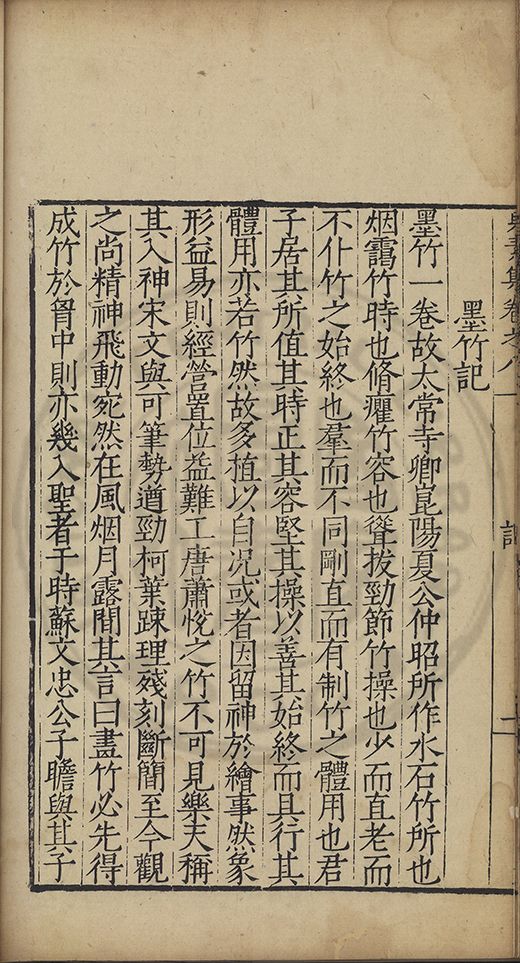 集卷之八
記
墨竹記
墨竹一卷故太常寺卿崑陽夏公仲昭所作水石竹所也
烟靄竹時也脩癯竹容也聳拔勁節竹操也少而直老而
不仆竹之始終也羣而不同剛直而有制竹之體用也君
子居其所值其時正其容堅其操以善其始終而且行其
體用亦若竹然故多植以自况或者因留神於繪事然象
形益易則經營置位益難工唐蕭悅之竹不可見樂天稱
其入神宋文與可筆勢遒勁柯葉踈理殘刻斷簡至今觀
之尚精神飛動宛然在風烟月露間其言曰畫竹必先得
成竹於胷中則亦幾入聖者于時蘇文忠公子瞻與其子